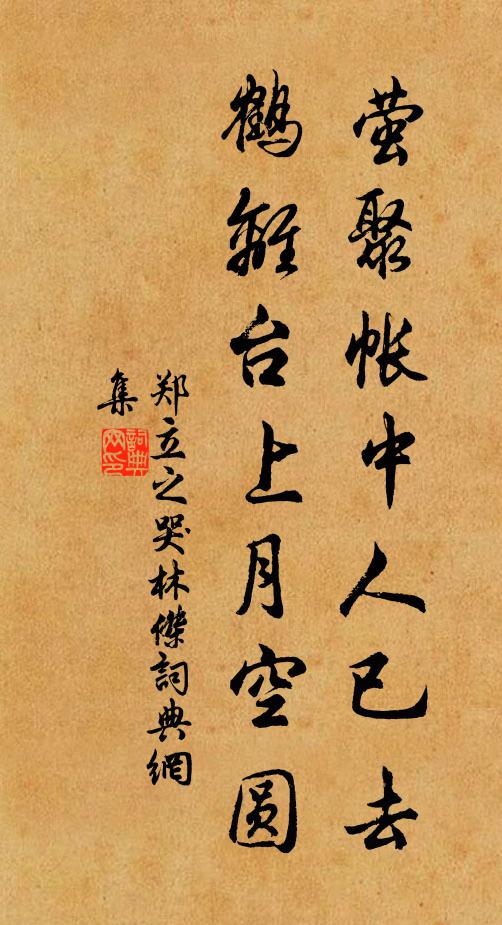 萤聚帐中人已去
鹤离台上月空圆
郑立之哭林傑詞典網
集
詞典
网印